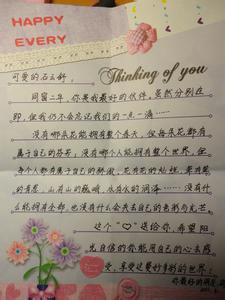 HAPPY
EVERY
可爱的石云舒:
Thinking of you
同窗二年,你是我最好的伙伴,虽然分别在
即,但我仍不会忘记我们的一点一滴……
没有哪朵花能拥有整个春天,但每朵花都有
属于自己的芬芳,没有哪个人能拥有整个世界,但
每个人都有属于自己的骄傲,花有花的灿烂,
的青葱,山有山的巍峨,水有水的润泽……没有什
么能拥有全部,也没有什么会失去自己的色彩与光芒
这个"♡"送给你,希望阳
光自信的你能用自己的心去感
受,享受这美好多彩的世界!
你最好的朋友